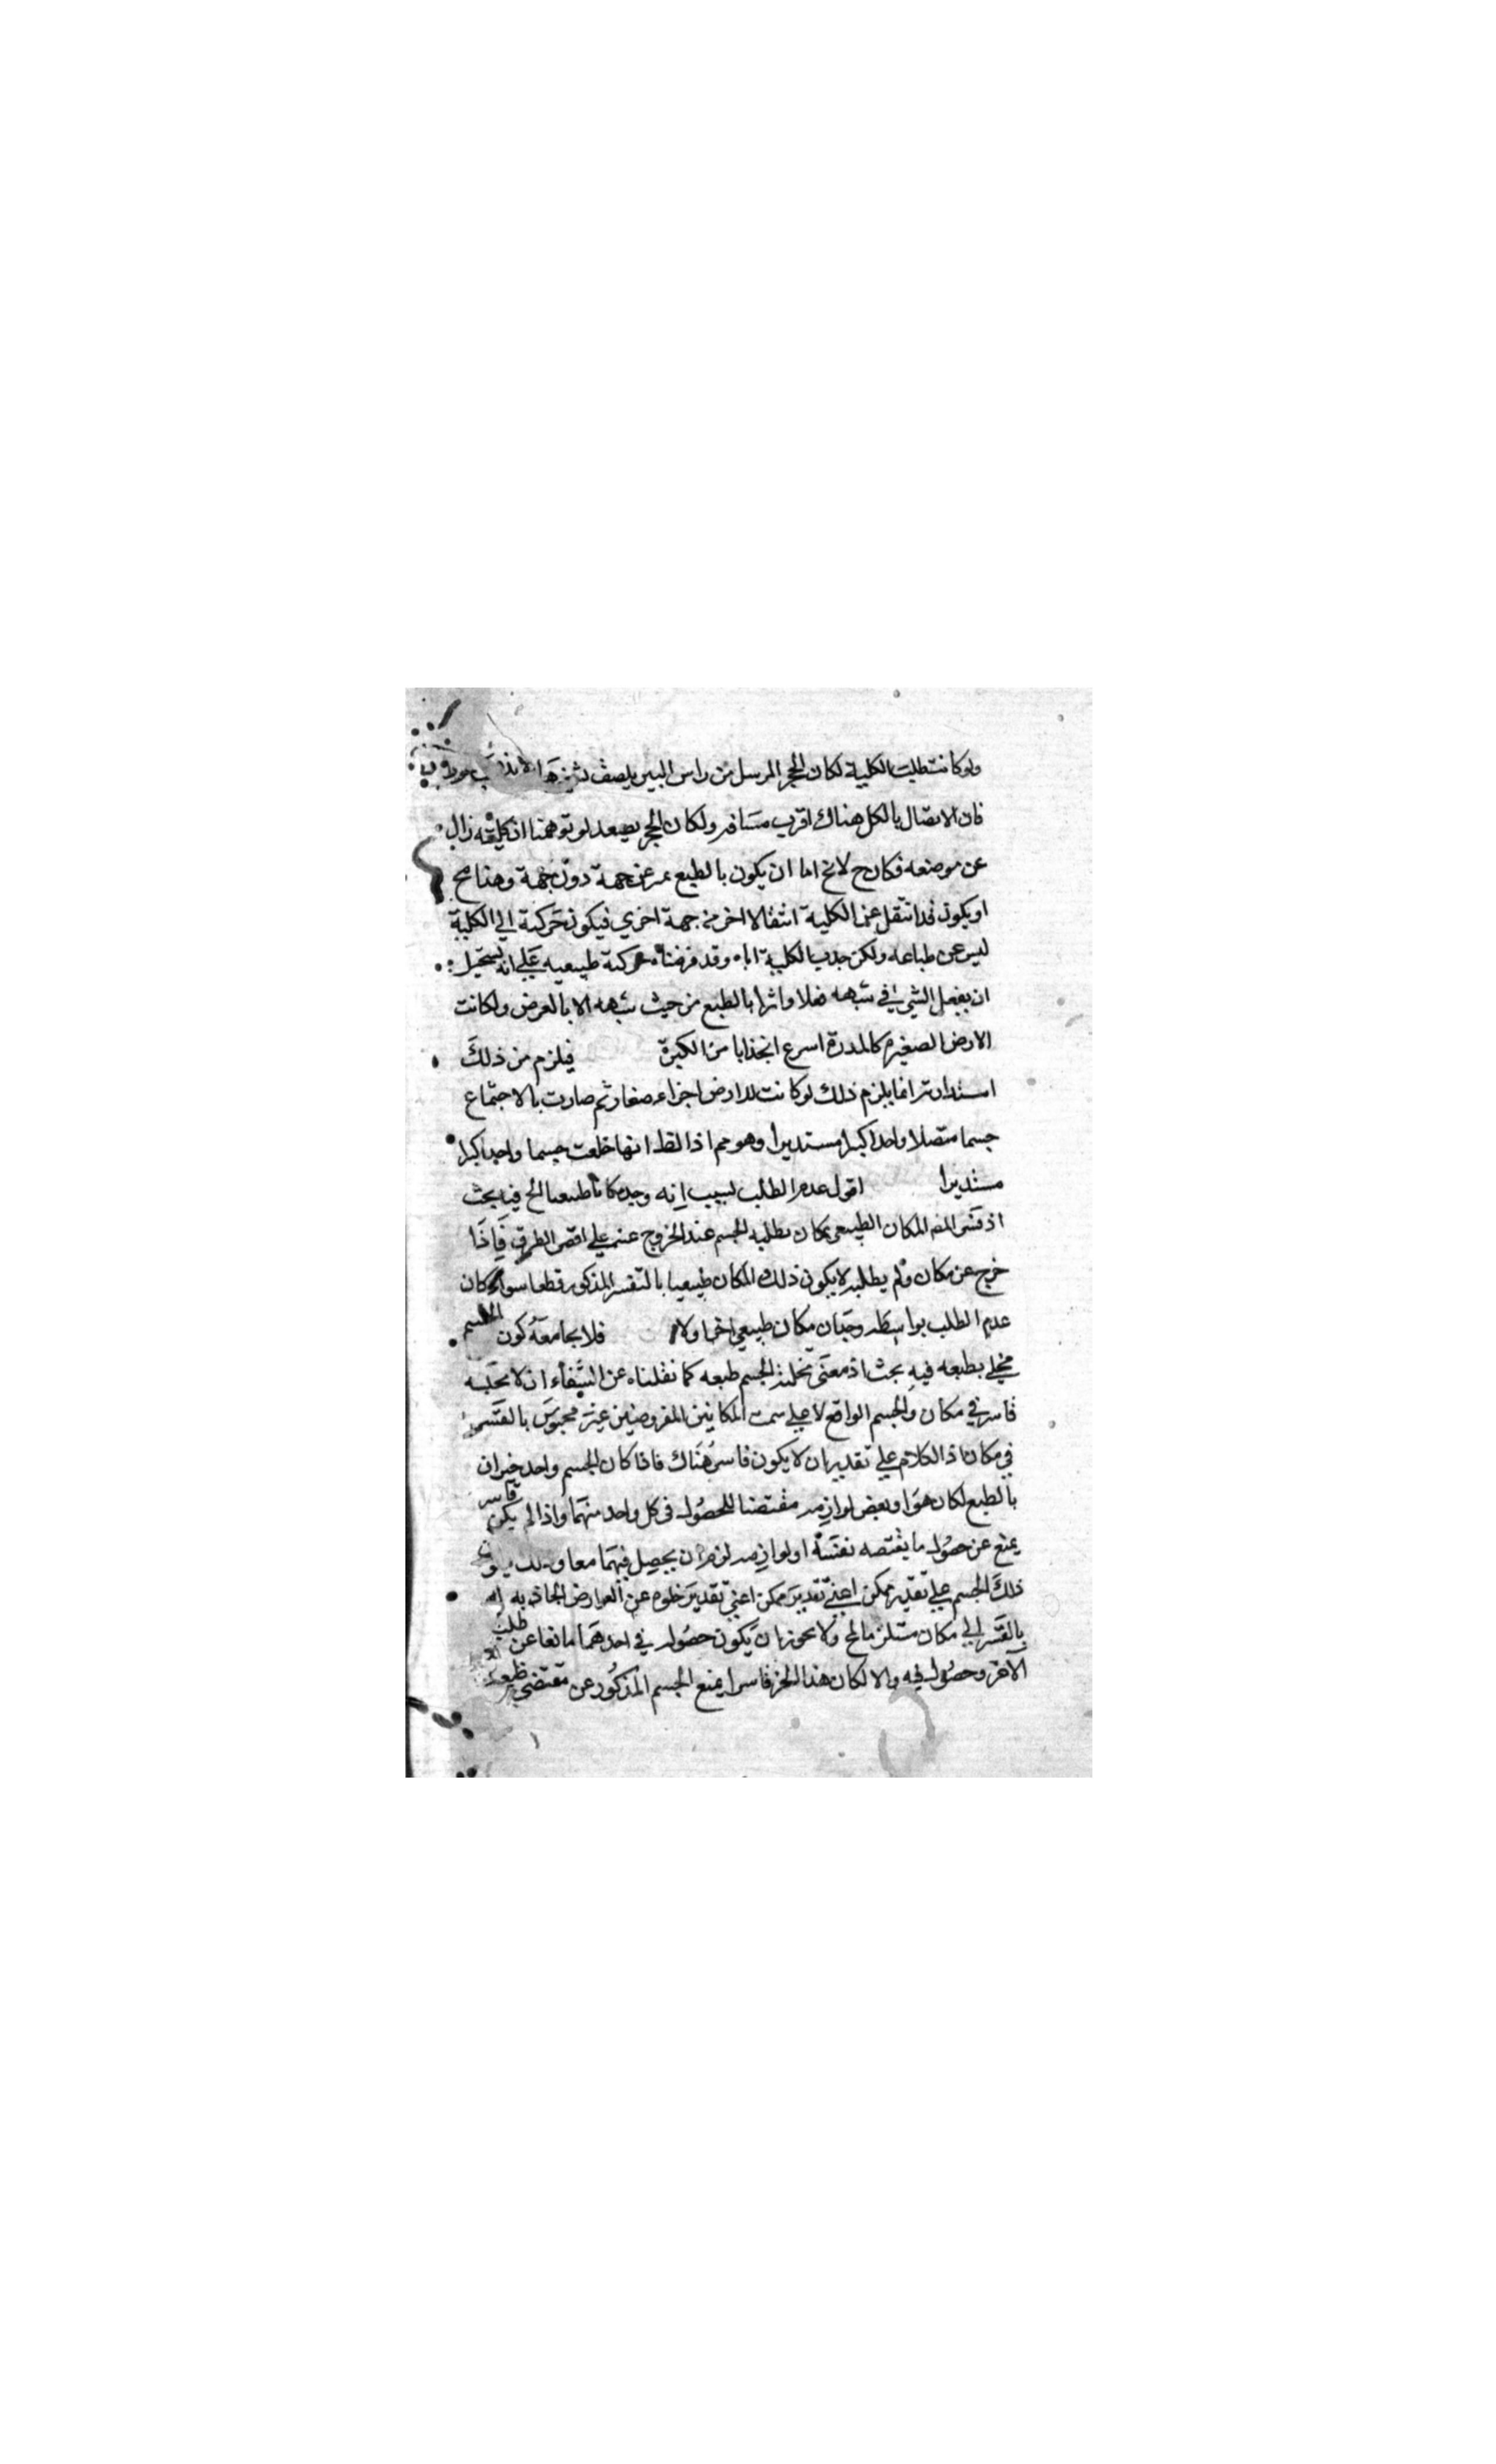 ولو كانت طلبت الكلية لكان الحجر المرسل من راس البير يلصق بشفيرها
فان الاتصال بالكل هناك اقرب مسافه ولكان الحجر يصعد لو توهمنا ان كليته زال
عن موضعه فكان ح لا يخ اما ان يكون بالطبع عن جهة دون جهة وهذا مح
او يكون قد انتقل عنها الكلية انتقالا اخر من جهة اخري فيكون حركته الي الكلية
ليس عن طباعه ولكن جذب الكلية اياه وقد فرضناه حركته طبيعيه علي انه يستحيل
ان يفعل الشي في شبهه فعلا واثرا بالطبع من حيث شبهه الا بالعرض ولكانت
الارض الصغيرة كالمدرة اسرع انجذابا من الكبيرة فيلزم من ذلك
استدارته انما يلزم ذلك لو كانت للارض اجزاء صغار ثم صارت بالاجتماع
جسما متصلا واحدا كبيرا مستديرا وهو مم اذ الظ انها خلقت جسما واحدا كبيرا
مستديرا اقول عدم الطلب لسبب انه وجد مكانا طبيعيا الخ فيه بحث
اذ فسر المص المكان الطبيعي بمكان يطلبه الجسم عند الخروج عنه علي اقصر الطرق فاذا
خرج عن مكان ولم يطلبه لا يكون ذلك المكان طبيعيا بالتفسير المذكور قطعا سواء كان
عدم الطلب بواسطة وجدان مكان طبيعي اخر اولا فلا يجامعه كون الجسم
مخلي بطبعه فيه بحث اذ معني تخلية الجسم طبعه كما نقلناه عن الشفاء ان لا يحبسه
قاسر في مكان والجسم الواقع لا علي سمت المكانين المفروضين غير محبوس بالقسر
في مكان اذ الكلام علي تقدير ان لا يكون قاسر هناك فاذا كان لجسم واحد حيزان
بالطبع لكان هو او بعض لوازمه مقتضيا للحصول في كل واحد منهما واذا لم يكن قاسر
يمنع عن حصول ما يقتضيه نفسه او لوازمه لزم ان يحصل فيهما معا
ذلك الجسم علي تقدير ممكن اعني تقدير ممكن اعني تقدير خلوه عن العوارض الجاذبة له
بالقسر الي مكان مستلزما لمح ولا يجوز ان يكون حصوله في احدهما مانعا عن طلب
الاخر وحصوله فيه والا لكان هذا الحيز قاسرا يمنع الجسم المذكور عن مقتضي طبعه